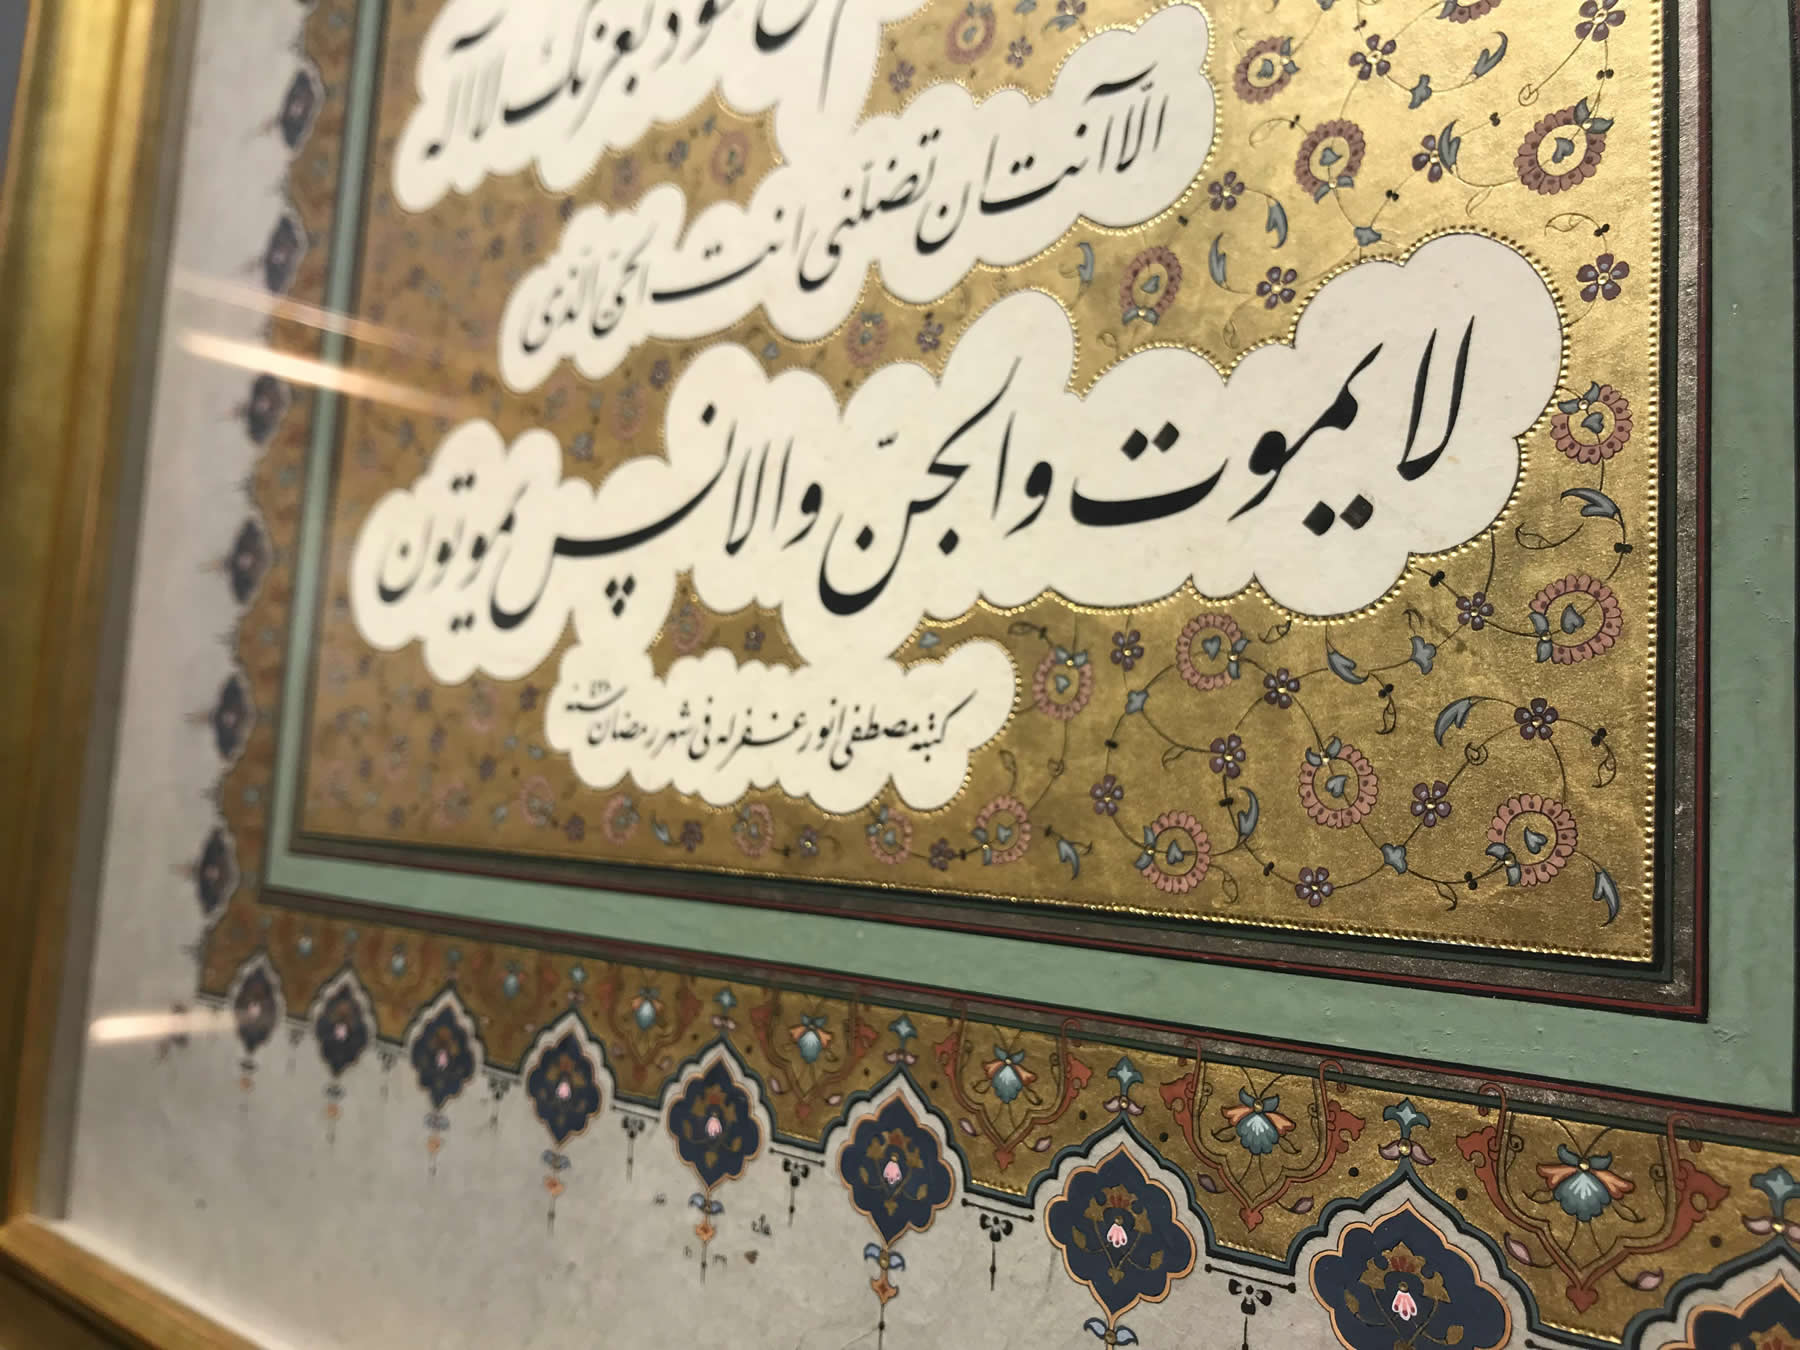 أعوذ بعزتك لا اله
الّا آنت ان تضلّني انت الحيّ الّذي
لا يموت والجنّ والانس يموتون
كتبه مصطفى انور غفر له في شهر رمضان سنه